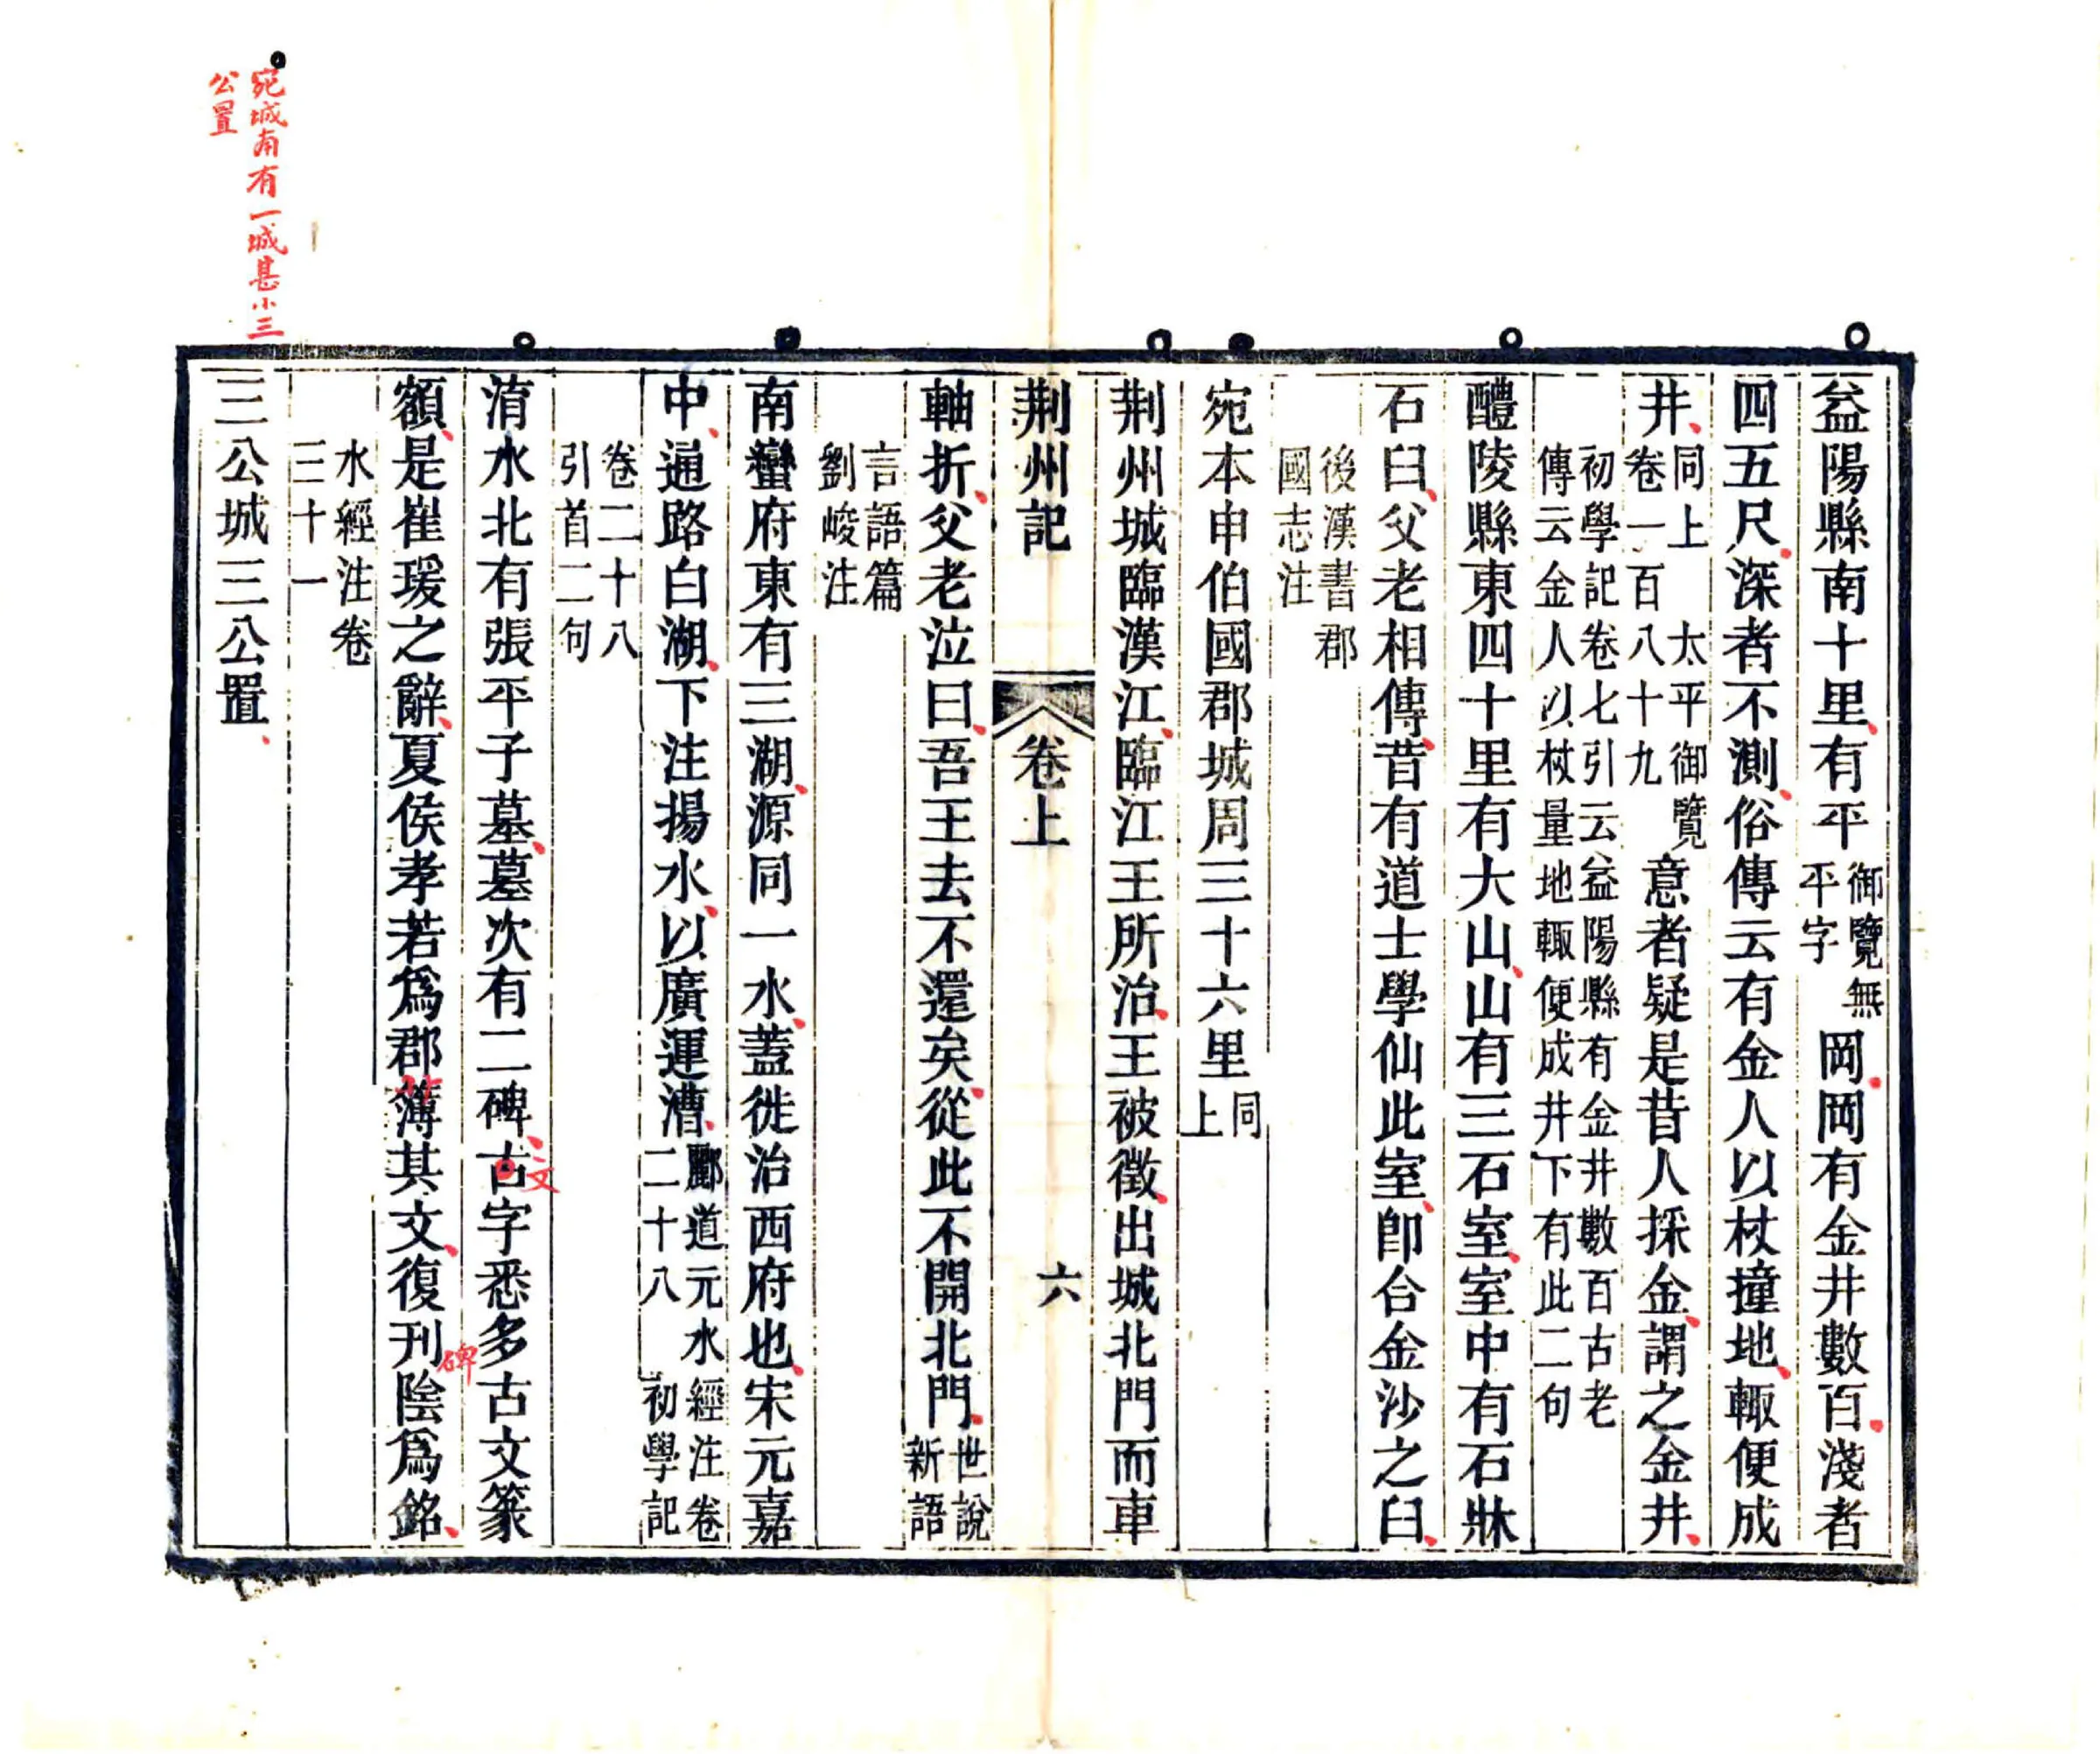 益陽縣南十里有平御覽無平字岡岡有金井數百淺者
四五尺深者不測俗傳云有金人以杖撞地輒便成
井同上 太平御覽卷一百八十九意者疑是昔人採金謂之金井
初學記卷七引云益陽縣有金井數百古老傳云金人以杖量地輒便成井下有此二句
醴陵縣東四十里有大山山有三石室室中有石牀
石臼父老相傳昔有道士學仙此室卽合金沙之臼
後漢書郡國志注
宛本申伯國郡城周三十六里同上
荆州城臨漢江臨江王所治王被徵出城北門而車
荆州記 卷上 六
軸折父老泣曰吾王去不還矣從此不開北門世說新語
言語篇劉峻注
南蠻府東有三湖源同一水蓋徙治西府也宋元嘉
中通路白湖下注揚水以廣運漕酈道元水經注卷二十八 初學記
卷二十八引首二句
淯水北有張平子墓墓次有二碑古字悉多古文篆
文
額是崔瑗之辭夏侯孝若爲郡簿其文復刊陰爲銘
碑
水經注卷三十一
三公城三公置
宛城南有一城甚小三
公置